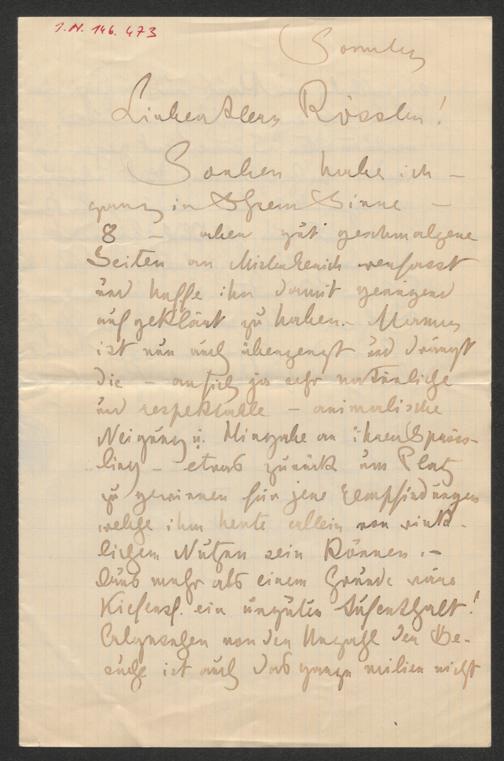 I.N. 146.473
Sonntag
Lieber Herr Rössler!
Soeben habe ich –
ganz in Ihrem Sinne –
8 – aber gut geschmalzene
Seiten an verfasst
und hoffe ihn damit genügend
aufgeklärt zu haben. –
ist nun auch überzeugt und drängt
die – an sich ja sehr natürliche
und respektable – animalische
Neigung u. Hingabe an ihren Spröss-
ling – etwas zurück um Platz
zu gewinnen für jene Empfindungen
welche ihm heute allein von wirk-
lichem Nutzen sein können. –
Aus mehr als einem Grunde wäre
ein unguter Aufenthalt!
Abgesehen von der Unzahl der Be-
suche ist auch das ganze milieu nicht